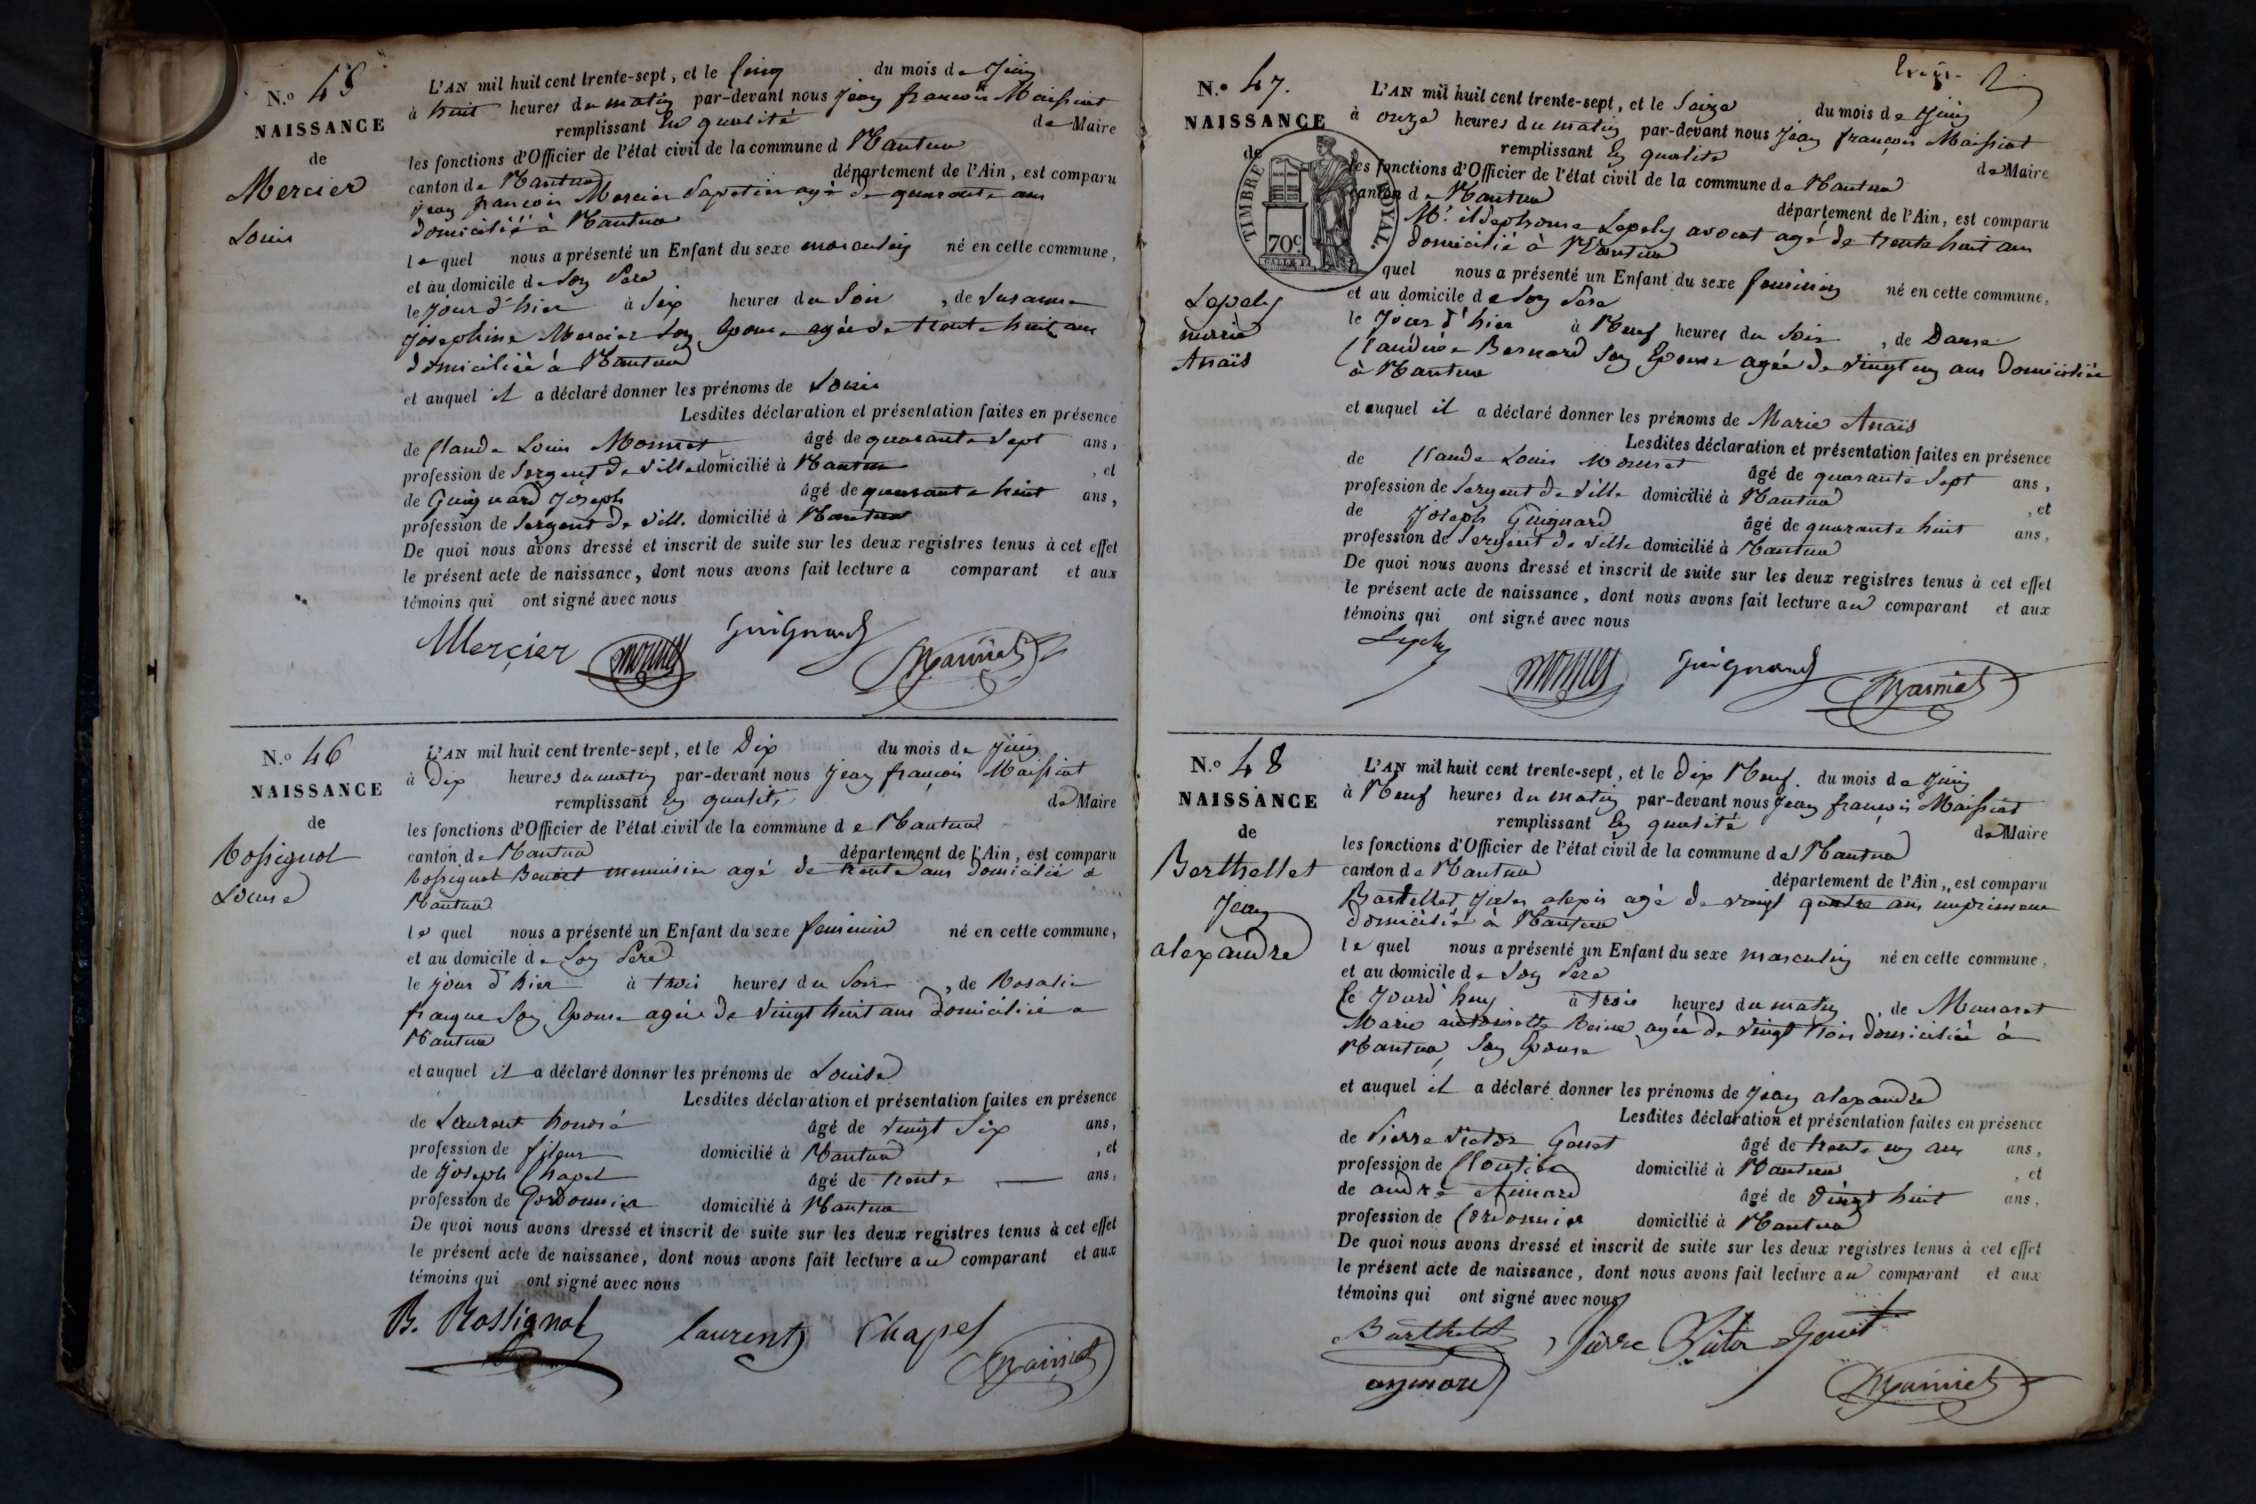 N.o 45
NAISSANCE
de
Mercier
Louis
L'AN mil huit cent trente-sept, et le Cinq du mois de Juin
à huit heures du matin par-devant nous Jean françois Maissiat
remplissant En qualité de Maire
les fonctions d'Officier de l'état civil de la commune d Nantua
canton de Nantua département de l'Ain, est comparu
jean françois Mercier agé de quarante ans
domicilié à Nantua
le quel nous a présenté un Enfant du sexe masculin né en cette commune,
et au domicile de Son Père
le jour d'hier à Six heures du Soir, de Susanne
Josephine Mercier Son Epouse agée de trente huit ans
domiciliée à Nantua
et auquel il a déclaré donner les prénoms de Louis
Lesdites déclaration et présentation faites en présence
de Claude Louis Monnet âgé de quarante Sept ans,
profession de Sergent de Ville domicilié à Nantua, et
de Guignard Joseph âgé de quarante huit ans,
profession de Sergent de Ville domicilié à Nantua
De quoi nous avons dressé et inscrit de suite sur les deux registres tenus à cet effet
le présent acte de naissance, dont nous avons fait lecture a comparant et aux
témoins qui ont signé avec nous
Merçier Monnet Guignard Maissiat
N.o 46
NAISSANCE
de
Rossignol
Louise
L'AN mil huit cent trente-sept, et le Dix du mois de Juin
à Dix heures du matin par-devant nous Jean françois Maissiat
remplissant En qualité de Maire
les fonctions d'Officier de l'état civil de la commune de Nantua
canton de Nantua département de l'Ain, est comparu
Rossignol Benoit menuisier agé de trente ans Domicilié à
Nantua
le quel nous a présenté un Enfant du sexe feminin né en cette commune,
et au domicile de Son Père
le jour d'hier à trois heures du Soir, de Rosalie
Son Epouse agée de Vingt huit ans domiciliée a
Nantua
et auquel il a déclaré donner les prénoms de Louise
Lesdites déclaration et présentation faites en présence
de Laurent honoré âgé de Vingt Six ans,
profession de fileur domicilié à Nantua, et
de Joseph Chapel âgé de trente ans,
profession de Cordonnier domicilié à Nantua
De quoi nous avons dressé et inscrit de suite sur les deux registres tenus à cet effet
le présent acte de naissance, dont nous avons fait lecture au comparant et aux
témoins qui ont signé avec nous
B. Rossignol Laurent Chapel Maissiat
N.o 47.
NAISSANCE
de
TIMBRE ROYAL.
70c
Lepely
marie
Anaïs
L'AN mil huit cent trente-sept, et le Seize du mois de Juin
à onze heures du matin par-devant nous Jean françois Maissiat
remplissant En qualité de Maire
les fonctions d'Officier de l'état civil de la commune de Nantua
canton de Nantua département de l'Ain, est comparu
Mr. ildephonse Lepely avocat agé de trente huit ans
domicilié à Nantua
quel nous a présenté un Enfant du sexe feminin né en cette commune,
et au domicile de Son Père
le Jour d'hier à Neuf heures du Soir, de Dame
Claudine Bernard Son Epouse agée de Vingt un ans Domiciliée
à Nantua
et auquel il a déclaré donner les prénoms de Marie Anaïs
Lesdites déclaration et présentation faites en présence
de Claude Louis Monnet âgé de quarante Sept ans,
profession de Sergent de Ville domicilié à Nantua, et
de Joseph Guignard âgé de quarante huit ans,
profession de Sergent de Ville domicilié à Nantua
De quoi nous avons dressé et inscrit de suite sur les deux registres tenus à cet effet
le présent acte de naissance, dont nous avons fait lecture au comparant et aux
témoins qui ont signé avec nous
Lepely Monnet Guignard Maissiat
N.o 48
NAISSANCE
de
Berthellet
Jean
alexandre
L'AN mil huit cent trente-sept, et le Dix Neuf du mois de Juin
à Neuf heures du matin par-devant nous Jean françois Maissiat
remplissant En qualité de Maire
les fonctions d'Officier de l'état civil de la commune de Nantua
canton de Nantua département de l'Ain, est comparu
Barthellet Jules alexis agé de vingt quatre ans imprimeur
domicilié à Nantua
le quel nous a présenté un Enfant du sexe masculin né en cette commune,
et au domicile de Son Père
le Jourd'huy à trois heures du matin, de
Marie antoinette Reine agée de Vingt trois domiciliée à
Nantua, Son Epouse
et auquel il a déclaré donner les prénoms de Jean alexandre
Lesdites déclaration et présentation faites en présence
de Pierre Victor âgé de trente un ans ans,
profession de domicilié à Nantua, et
de andré Aimard âgé de Vingt huit ans,
profession de Cordonnier domicilié à Nantua
De quoi nous avons dressé et inscrit de suite sur les deux registres tenus à cet effet
le présent acte de naissance, dont nous avons fait lecture au comparant et aux
témoins qui ont signé avec nous
Barthelet Pierre Victor
aymard Maissiat